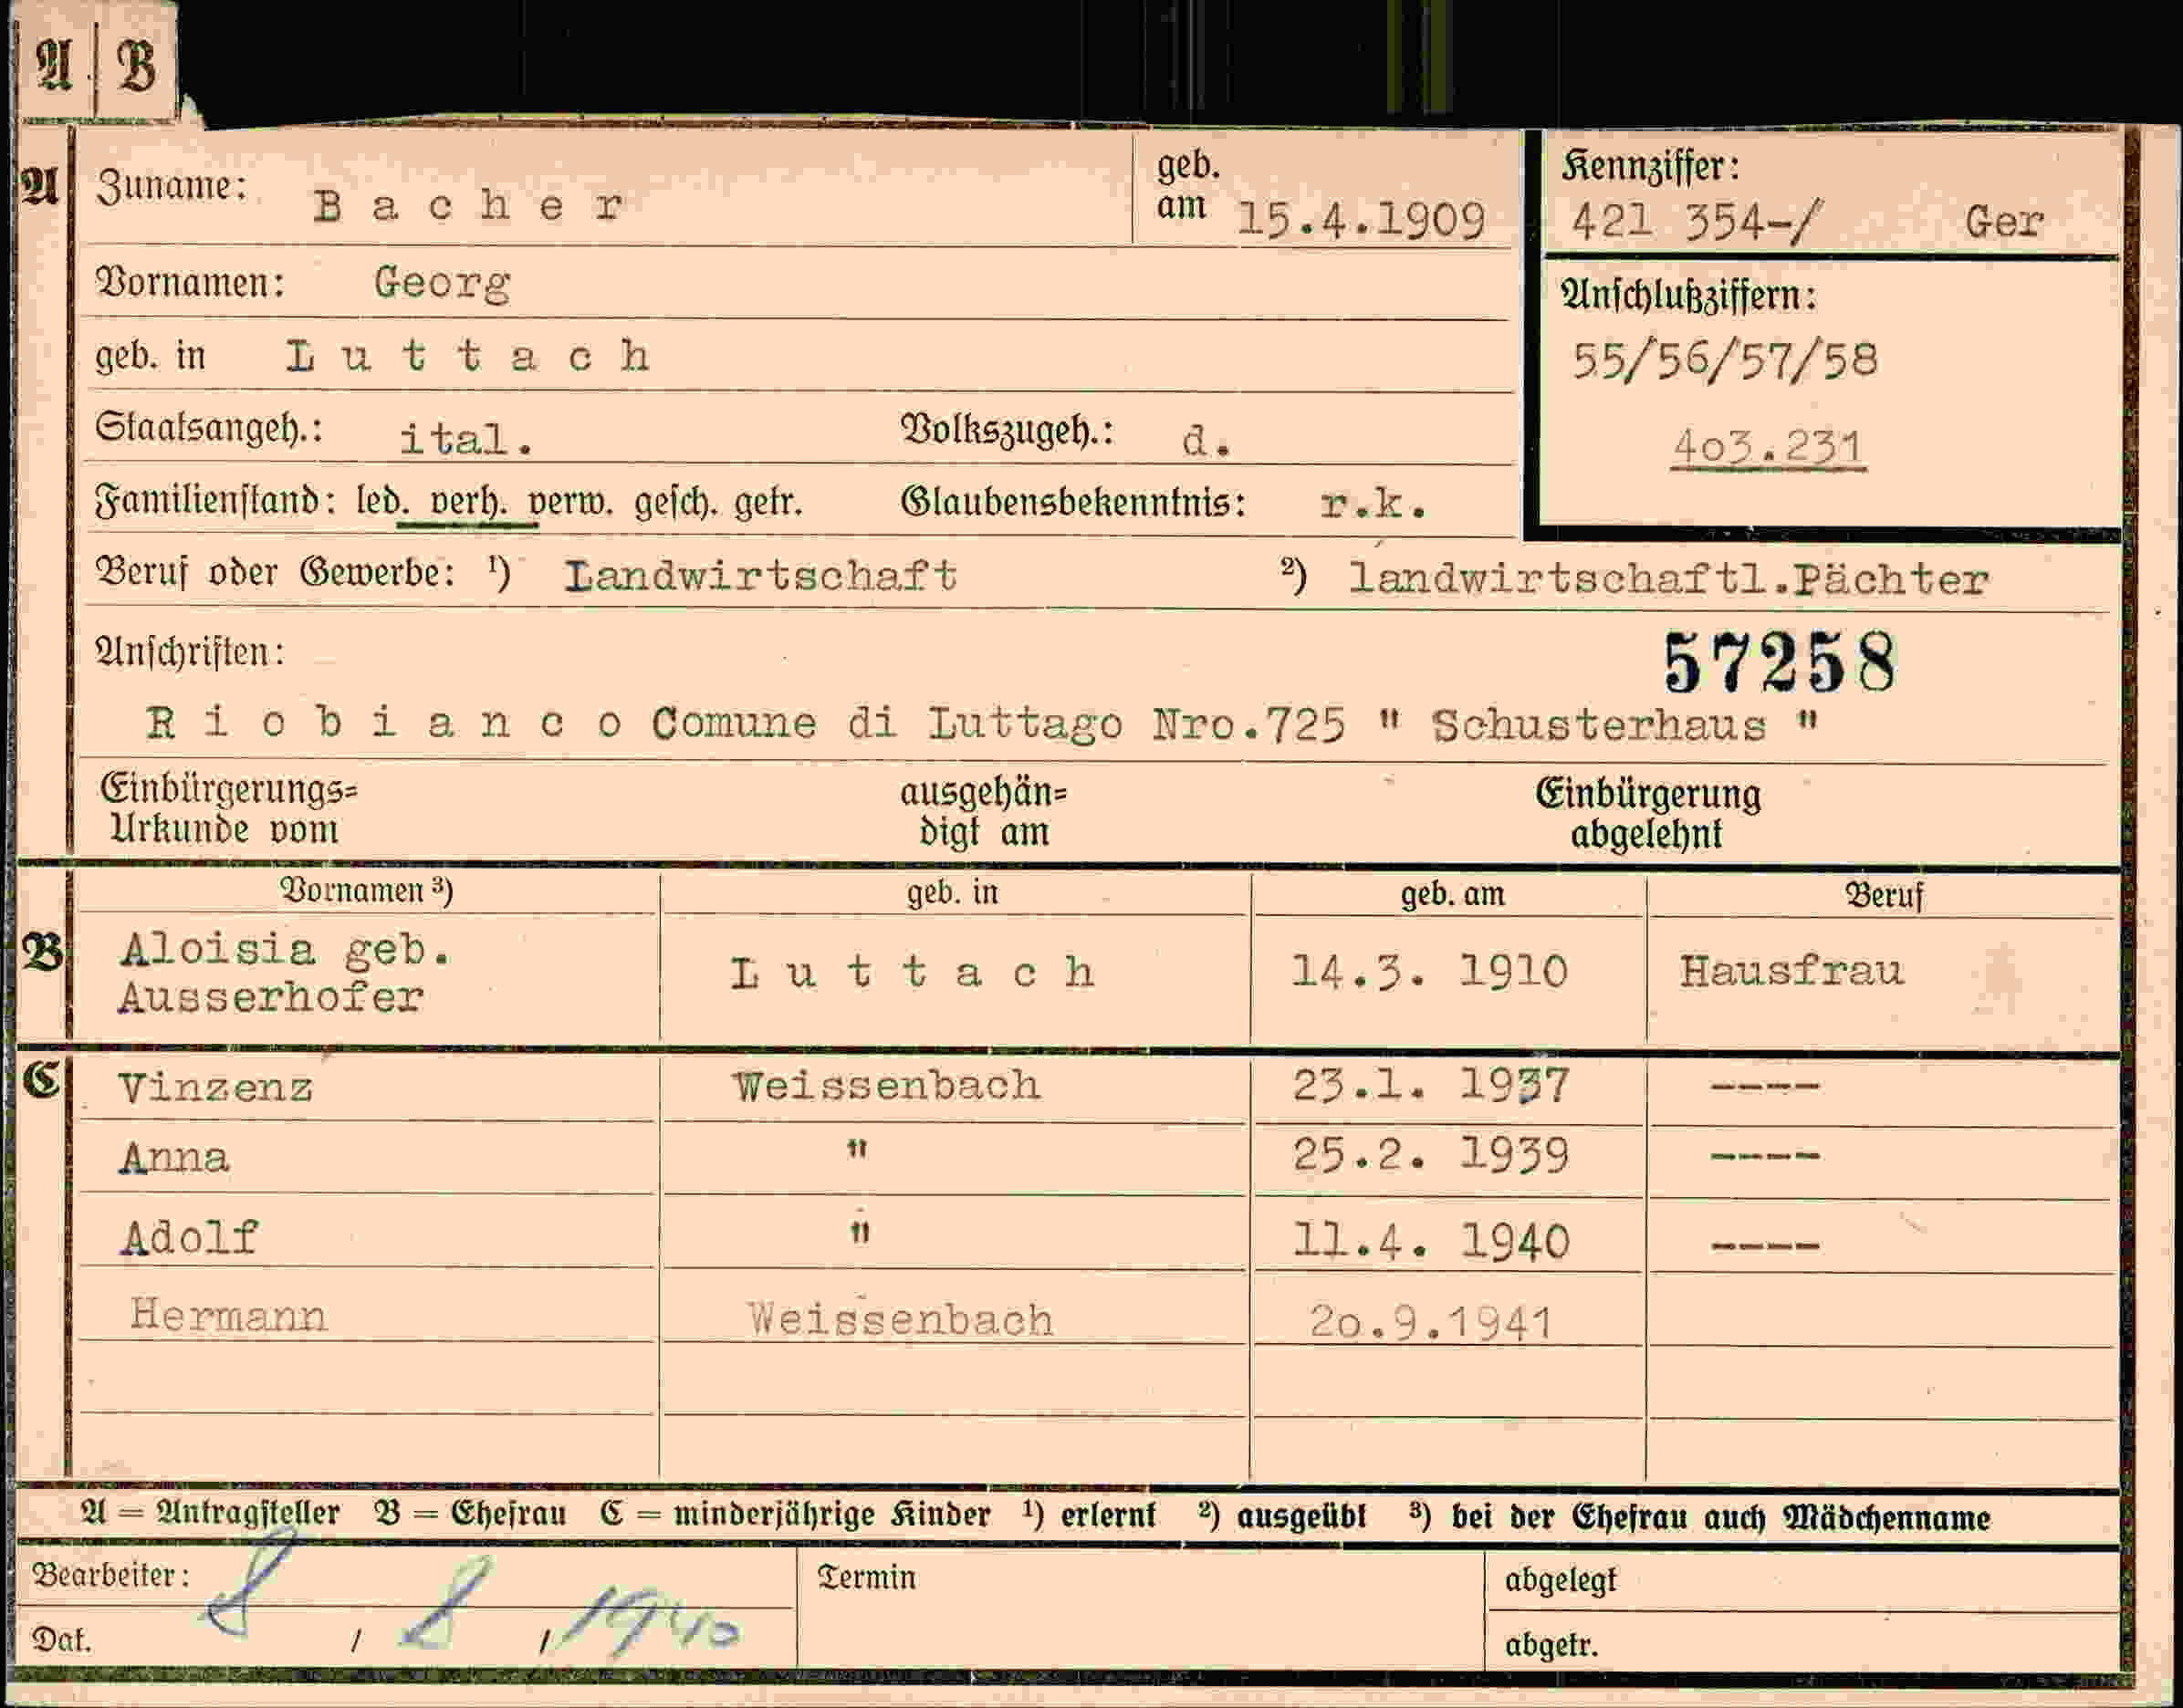 A B
A Zuname: Bacher geb. am 15.4.1909
Kennziffer:
421 354-/ Ger
Vornamen: Georg
Anschlußziffern:
geb. in Luttach
55/56/57/58
Staatsangeh.: ital. Volkszugeh.: d.
403.231
Familienstand: led. verh. verw. gesch. getr. Glaubensbekenntnis: r.k.
Beruf oder Gewerbe: ¹) Landwirtschaft ²) landwirtschaftl.Pächter
Anschriften: 57258
Riobianco Comune di Luttago Nro.725 " Schusterhaus "
Einbürgerungs= ausgehän= Einbürgerung
Urkunde vom digt am abgelehnt
Vornamen ³) geb. in geb. am Beruf
B Aloisia geb. Luttach 14.3. 1910 Hausfrau
Ausserhofer
C Vinzenz Weissenbach 23.1. 1937 ----
Anna " 25.2. 1939 ----
Adolf " 11.4. 1940 ----
Hermann Weissenbach 2o.9.1941
A = Antragsteller B = Ehefrau C = minderjährige Kinder ¹) erlernt ²) ausgeübt ³) bei der Ehefrau auch Mädchenname
Bearbeiter: Termin abgelegt
Dat. 8 / 8 / 1940 abgetr.